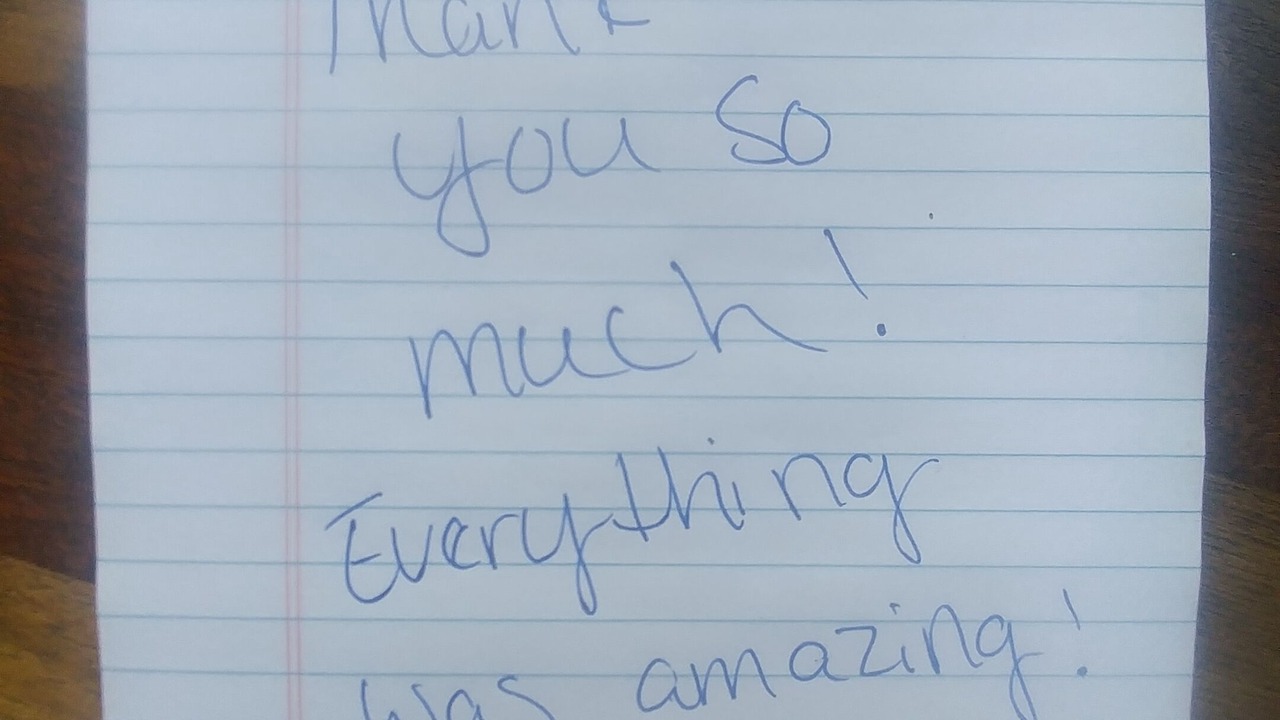 Thank
you so
much!
Everything
was amazing!